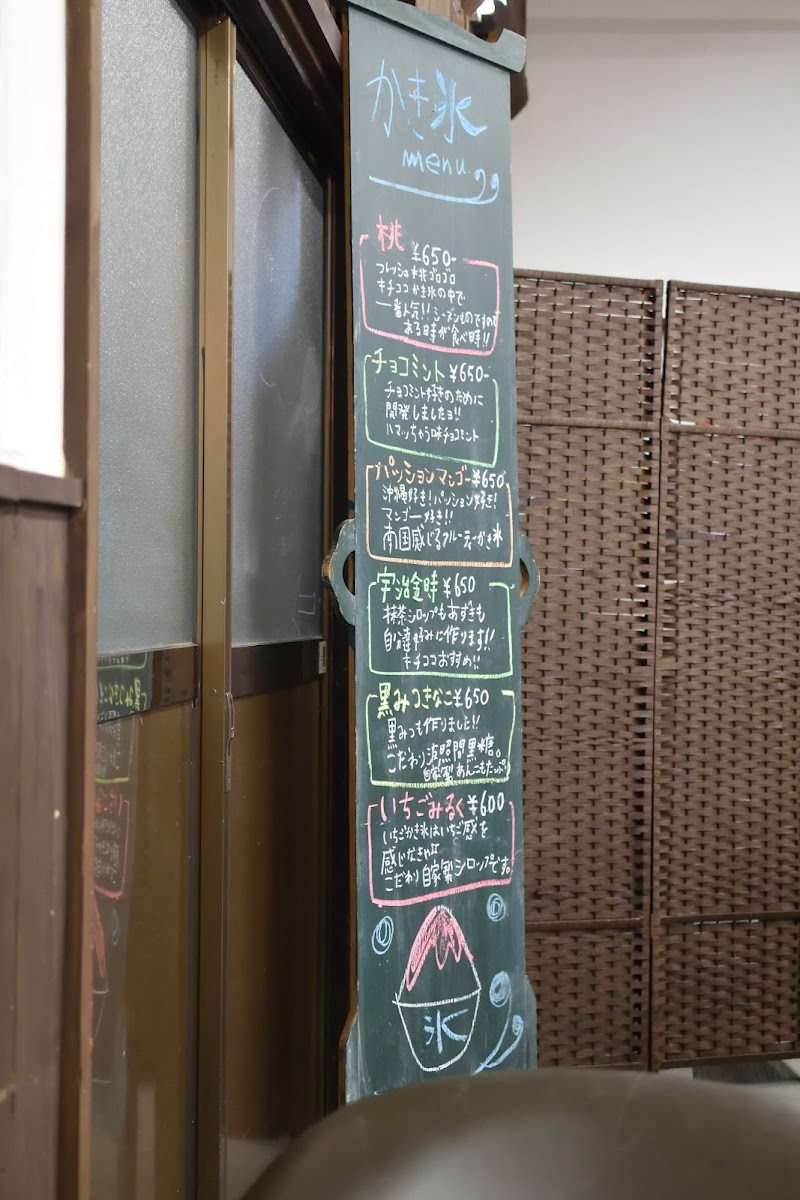 かき氷
menu
桃
¥650-
フレッシュ桃ゴロゴロ
キチココかき氷の中で
一番人気!! シーズンものですので
ある時が食べ時!!
チョコミント ¥650-
チョコミント好きのために
開発しましたョ!!
ハマッちゃう味チョコミント
パッションマンゴー ¥650
沖縄好き!パッション好き!
マンゴー好き!!
南国感じるフルーティーかき氷
宇治金時 ¥650
抹茶シロップもあずきも
自分達好みに作ります!!
キチココおすすめ!!
黒みつきなこ ¥650
黒みつも作りました!!
こだわり波照間黒糖。
自家製あんこもたっぷり
いちごみるく ¥600
いちごかき氷はいちご感を
感じなきゃ
こだわり自家製シロップです。
氷